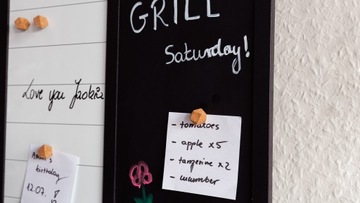 GRILL
Saturday!
Love you
- tomatoes
- apple x5
- tangerine x2
- cucumber
birthday
12.07.